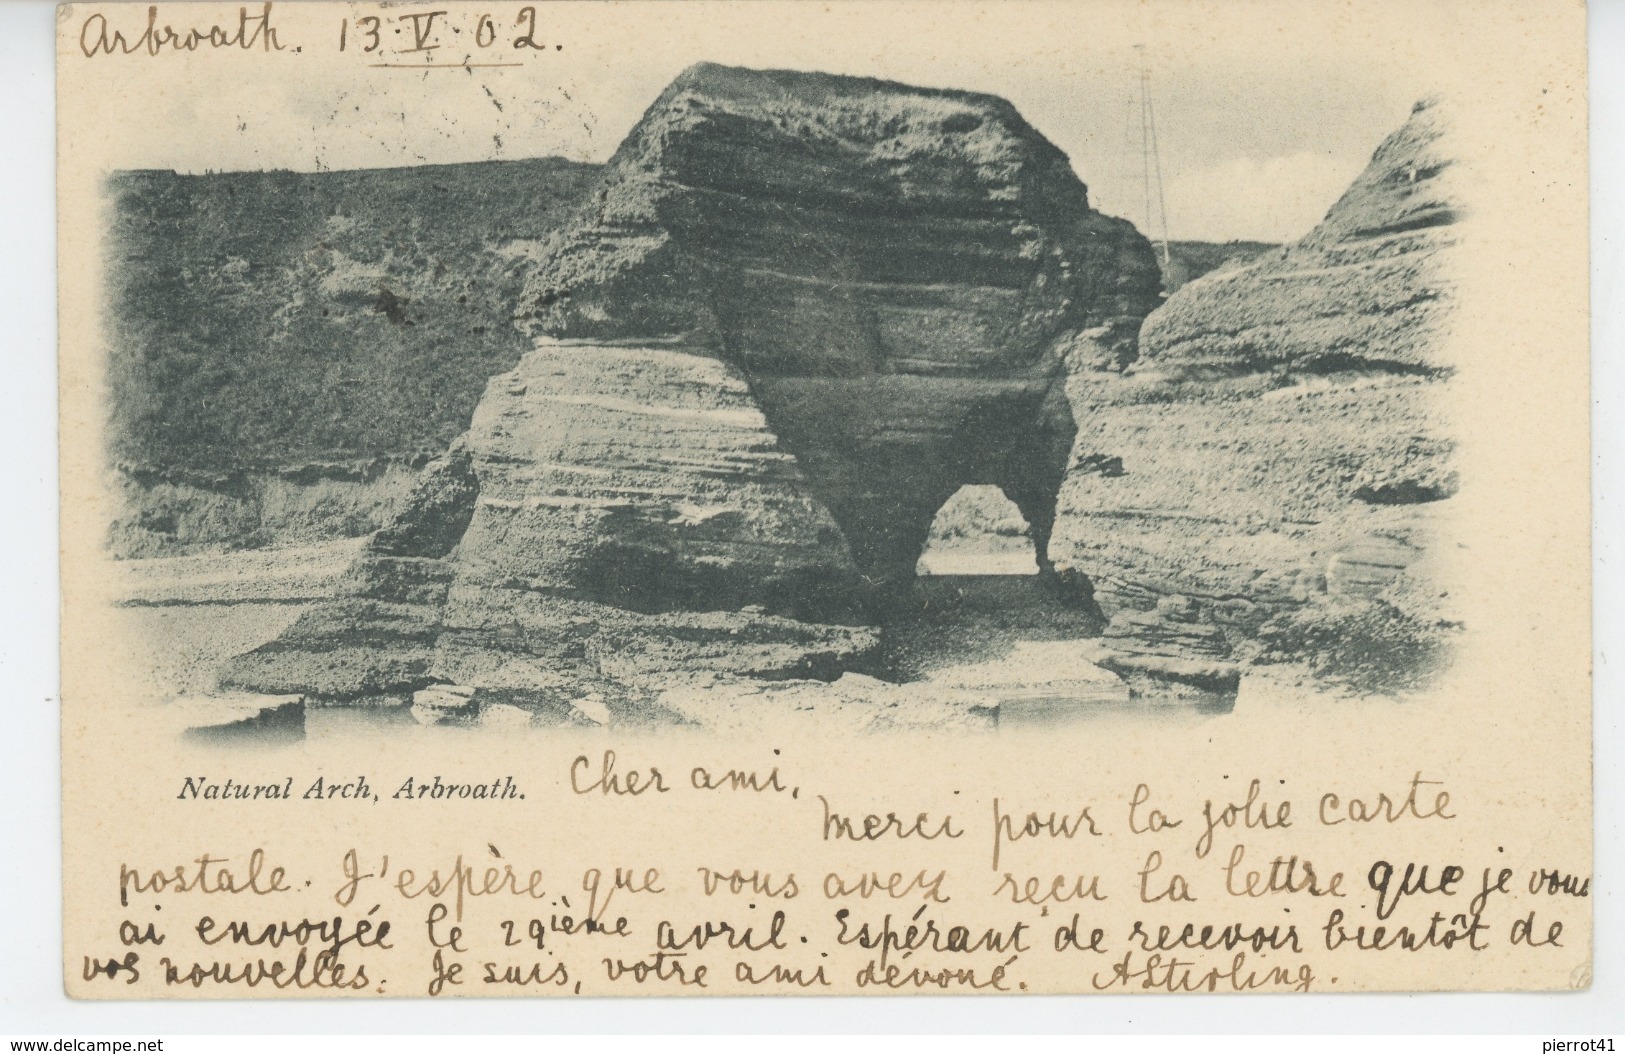 Arbroath. 13·V·02.
Natural Arch, Arbroath.
Cher ami,
Merci pour la jolie carte
postale. J'espère que vous avez reçu la lettre que je vous
ai envoyée le 29ième avril. Espérant de recevoir bientôt de
vos nouvelles. Je suis, votre ami dévoué. AStirling.
www.delcampe.net
pierrot41